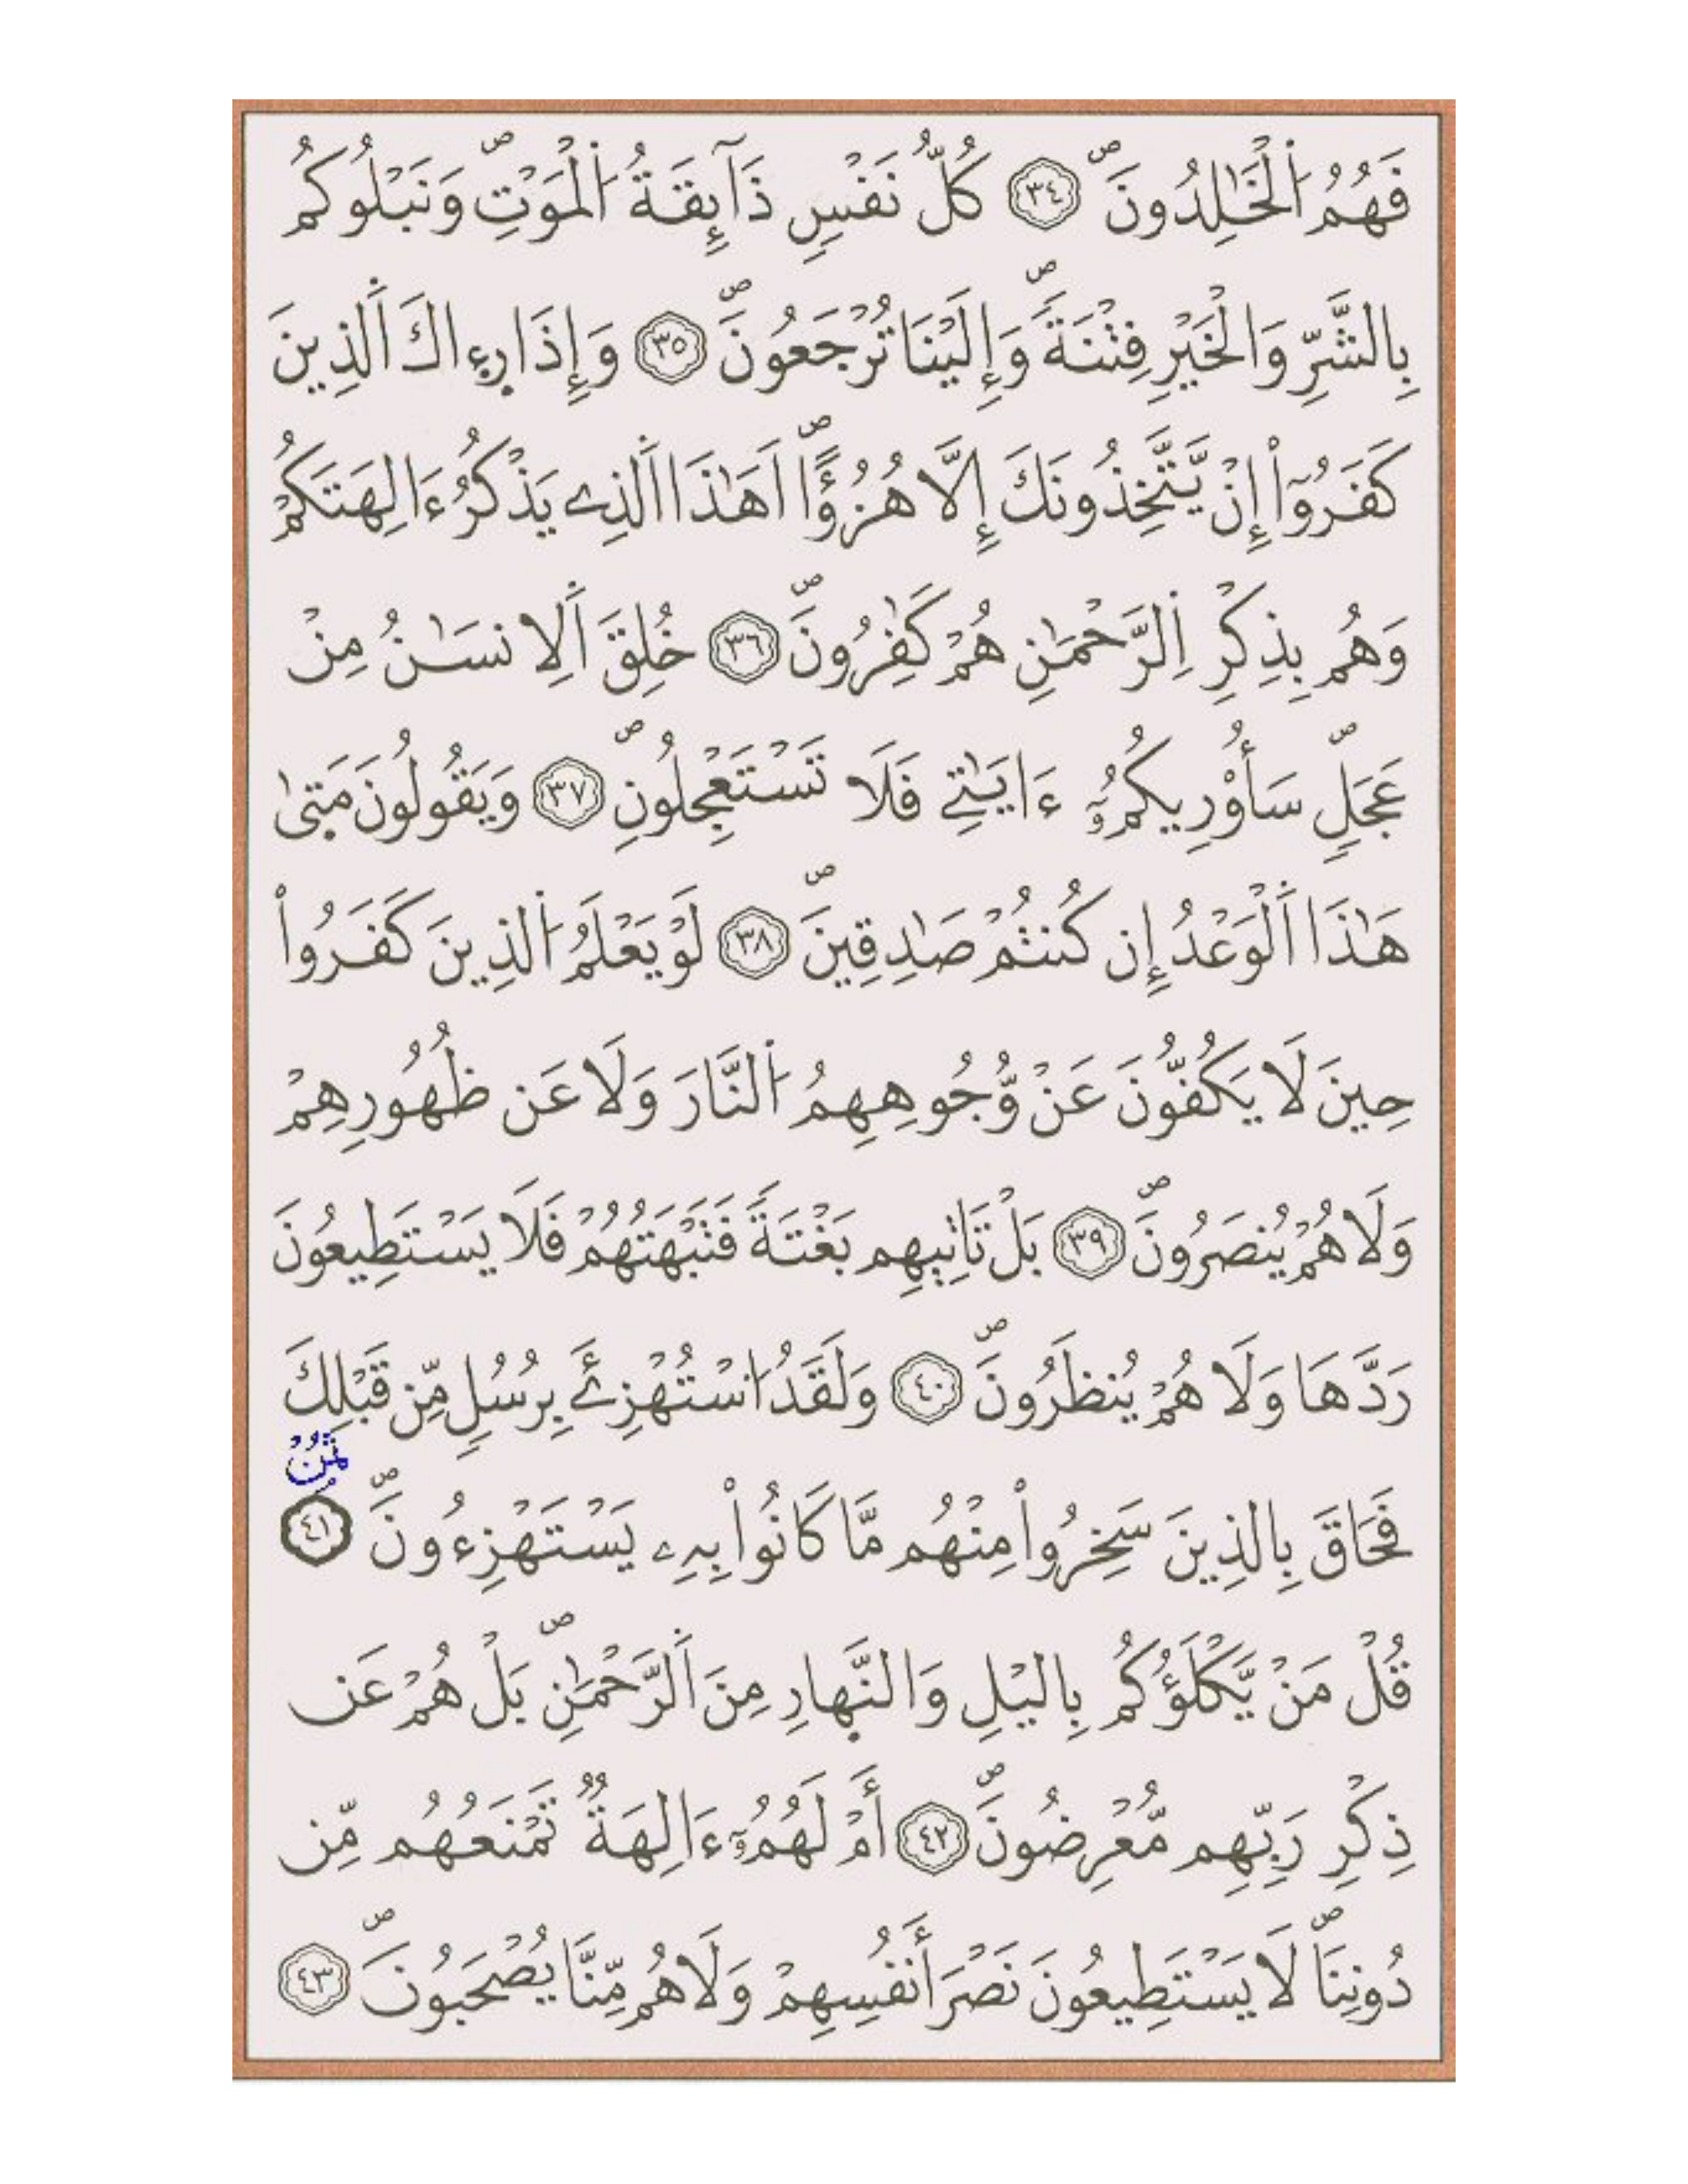 فَهُمُ اُ۬لْخَٰلِدُونَۖ ٣٤ كُلُّ نَفْسٖ ذَآئِقَةُ اُ۬لْمَوْتِۖ وَنَبْلُوكُم
بِالشَّرِّ وَالْخَيْرِ فِتْنَةٗۖ وَإِلَيْنَا تُرْجَعُونَۖ ٣٥ وَإِذَا رِء۪اكَ اَ۬لذِينَ
كَفَرُوٓاْ إِنْ يَّتَّخِذُونَكَ إِلَّا هُزُؤاًۖ اَهَٰذَا اَ۬لذِے يَذْكُرُ ءَالِهَتَكُمْ
وَهُم بِذِكْرِ اِ۬لرَّحْمَٰنِ هُمْ كَٰفِرُونَۖ ٣٦ خُلِقَ اَ۬لِانسَٰنُ مِنْ
عَجَلٖۖ سَأُوْرِيكُمُۥٓ ءَايَٰتِے فَلَا تَسْتَعْجِلُونِۖ ٣٧ وَيَقُولُونَ مَت۪ىٰ
هَٰذَا اَ۬لْوَعْدُ إِن كُنتُمْ صَٰدِقِينَۖ ٣٨ لَوْ يَعْلَمُ اُ۬لذِينَ كَفَرُواْ
حِينَ لَا يَكُفُّونَ عَنْ وُّجُوهِهِمُ اُ۬لنَّارَ وَلَا عَن ظُهُورِهِمْ
وَلَا هُمْ يُنصَرُونَۖ ٣٩ بَلْ تَاتِيهِم بَغْتَةٗ فَتَبْهَتُهُمْ فَلَا يَسْتَطِيعُونَ
رَدَّهَا وَلَا هُمْ يُنظَرُونَۖ ٤٠ وَلَقَدُ اُ۟سْتُهْزِئَ بِرُسُلٖ مِّن قَبْلِكَ
ثمن
فَحَاقَ بِالذِينَ سَخِرُواْ مِنْهُم مَّا كَانُواْ بِهِۦ يَسْتَهْزِءُونَۖ ٤١
قُلْ مَنْ يَّكْلَؤُكُم بِاليْلِ وَالنَّه۪ارِ مِنَ اَ۬لرَّحْمَٰنِۖ بَلْ هُمْ عَن
ذِكْرِ رَبِّهِم مُّعْرِضُونَۖ ٤٢ أَمْ لَهُمُۥٓ ءَالِهَةٞ تَمْنَعُهُم مِّن
دُونِنَاۖ لَا يَسْتَطِيعُونَ نَصْرَ أَنفُسِهِمْ وَلَا هُم مِّنَّا يُصْحَبُونَۖ ٤٣